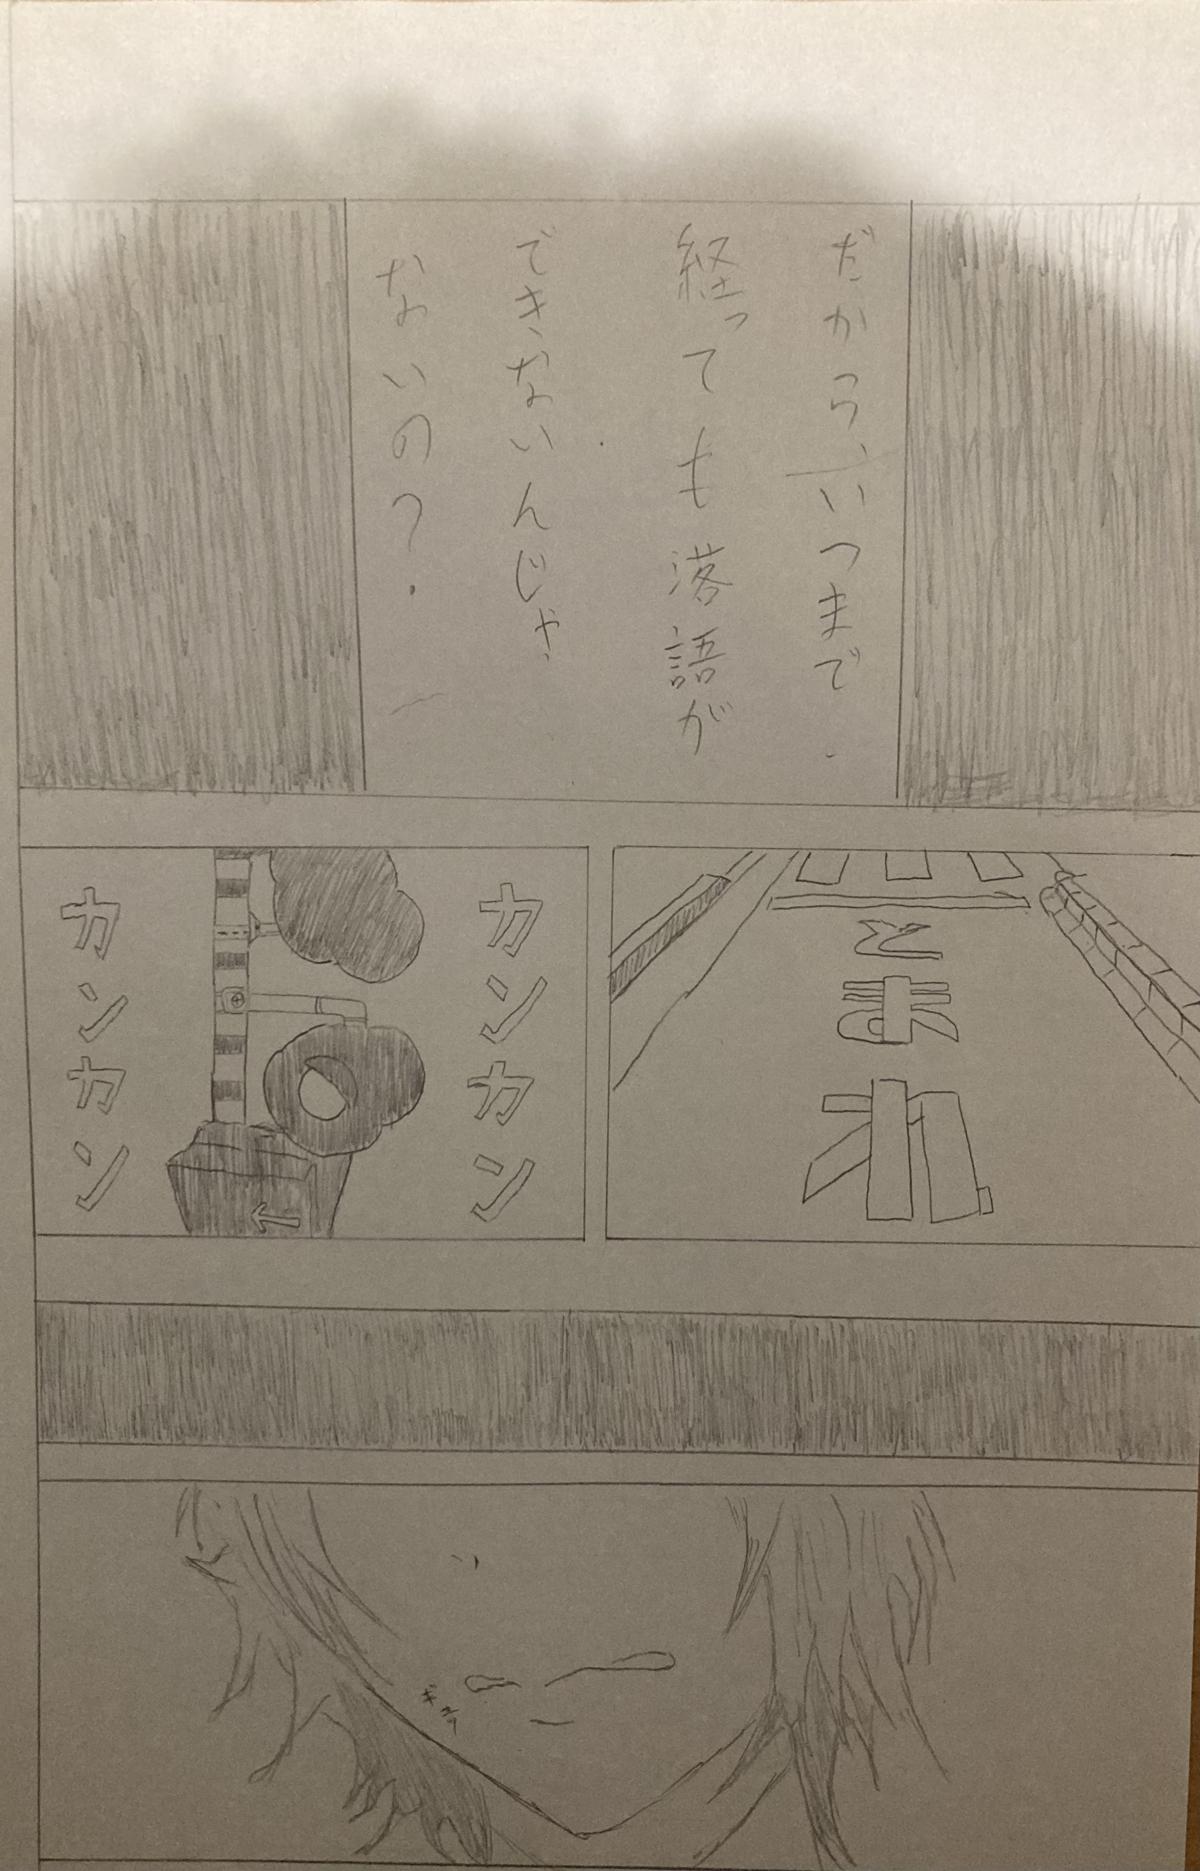 だから、いつまで
経っても落語が
できないんじゃ
ないの？
とまれ
カンカン
カンカン
ギュッ